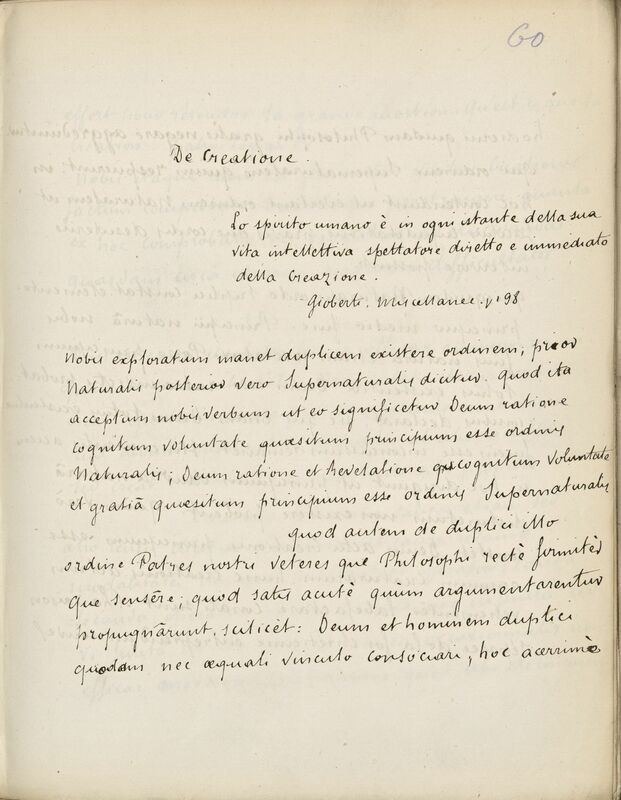 60
De Creatione.
Lo spirito umano è in ogni istante della sua
vita intellettiva spettatore diretto e immediato
della Creazione.
Gioberti. Miscellanee. p. 98
Nobis exploratum manet duplicem existere ordinem, prior
Naturalis posterior vero Supernaturalis dicitur. quod ita
acceptum nobis verbum ut eo significetur Deum ratione
cognitum voluntate quæsitum principium esse ordinis
Naturalis; Deum ratione et Revelatione cognitum voluntate
et gratiâ quæsitum principium esse ordinis Supernaturalis
quod autem de duplici illo
ordine Patres nostri veteres que Philosophi rectè firmitèr
que sensēre; quod satis acutè quum argumentarentur
propugnārunt. scilicèt: Deum et hominem duplici
quodam nec æquali vinculo consociari, hoc acerrimè